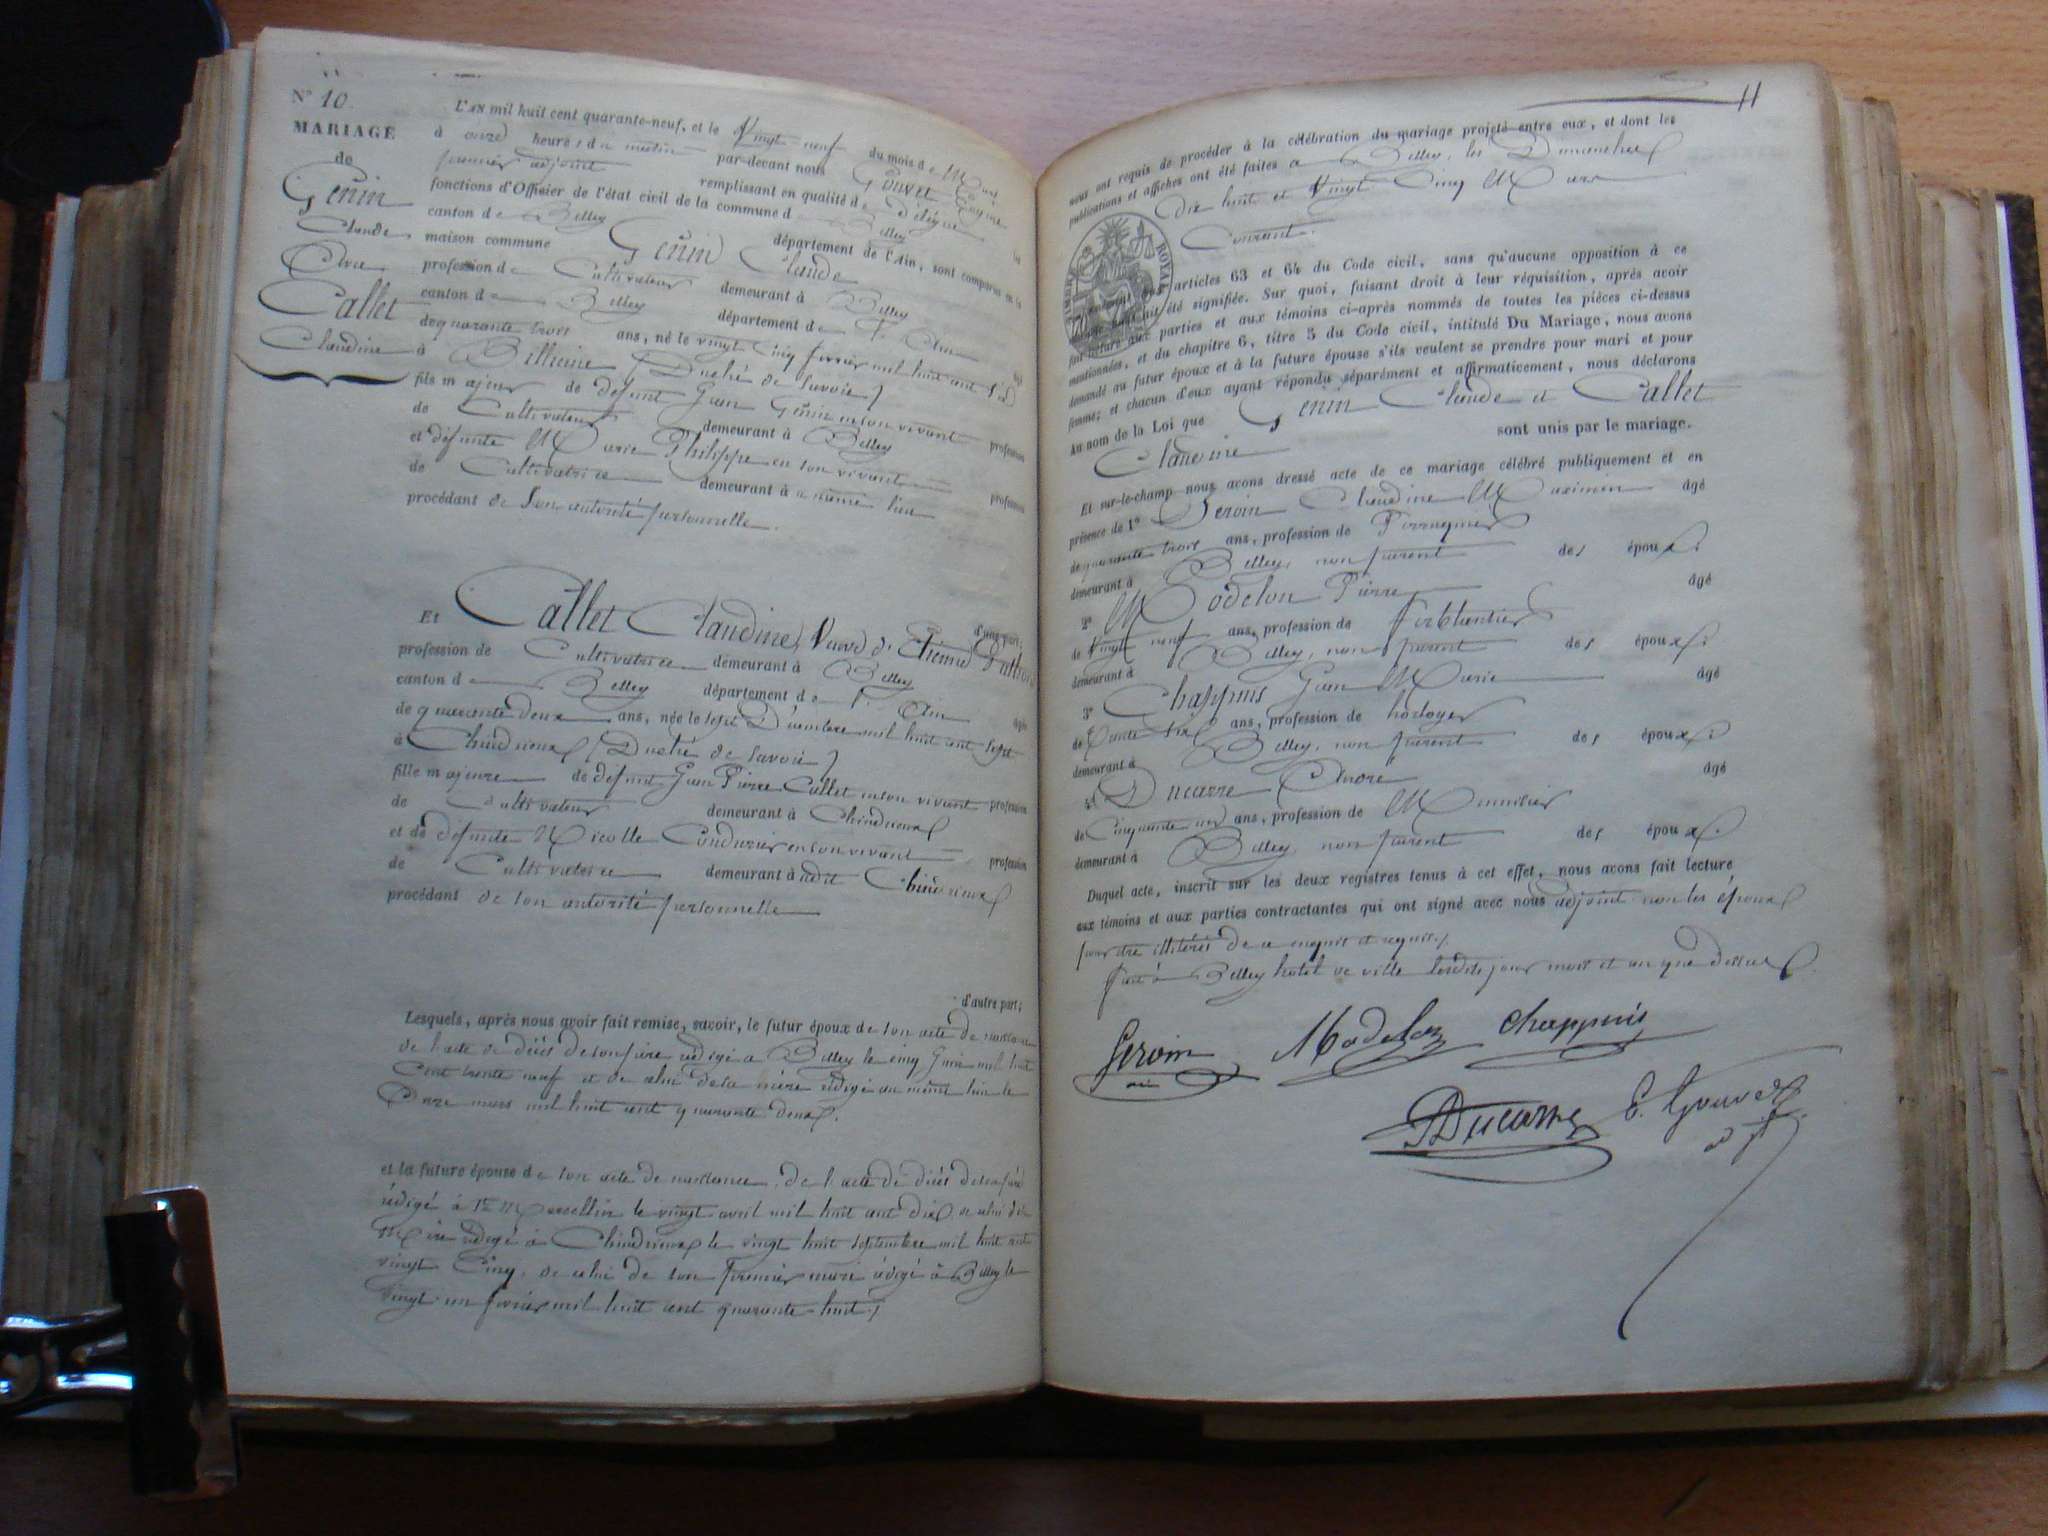 N° 10.
MARIAGE
de
Genin
Claude
Avec
Callet
Claudine
L'AN mil huit cent quarante-neuf, et le Vingt neuf du mois de Mars
à onze heures du matin par-devant nous Gouvet Eugène
premier adjoint remplissant en qualité de Délégué les
fonctions d'Officier de l'état civil de la commune de Belley
canton de Belley département de l'Ain, sont comparus en la
maison commune Genin Claude
profession de Cultivateur demeurant à Belley
canton de Belley département de l'Ain âgé
de quarante trois ans, né le vingt cinq fevrier mil huit cent six
à Billieme (Duché de Savoie)
fils majeur de défunt Jean Genin en son vivant profession
de Cultivateur demeurant à Belley
et défunte Marie Philippe en son vivant profession
de Cultivatrice demeurant à même lieu
procédant de son autorité personnelle.
d'une part;
Et Callet Claudine, Veuve d'Etienne
profession de Cultivatrice demeurant à Belley
canton de Belley département de l'Ain âgée
de quarante deux ans, née le sept Décembre mil huit cent sept
à Chindrieux (Duché de Savoie)
fille majeure de défunt Jean Pierre Callet en son vivant profession
de Cultivateur demeurant à Chindrieux
et de défunte Nicolle Condurier en son vivant profession
de Cultivatrice demeurant à udit Chindrieux
procédant de son autorité personnelle
d'autre part;
Lesquels, après nous avoir fait remise, savoir, le futur époux de son acte de naissance
de l'acte de décès de son père rédigé à Belley le cinq Juin mil huit
Cent trente neuf et de celui de sa mère rédigé au même lieu le
Onze mars mil huit cent quarante deux.
et la future épouse de son acte de naissance, de l'acte de décès de son père
rédigé à St Marcellin le vingt avril mil huit cent dix, de celui de sa
Mère rédigé à Chindrieux le vingt huit septembre mil huit cent
vingt Cinq, de celui de son Premier mari rédigé à Belley le
vingt un fevrier mil huit cent quarante huit./
11
nous ont requis de procéder à la célébration du mariage projeté entre eux, et dont les
publications et affiches ont été faites à Belley, les Dimanches
dix huit et Vingt Cinq Mars
Courant.
TIMBRE ROYAL
articles 63 et 64 du Code civil, sans qu'aucune opposition à ce
mariage nous ait été signifiée. Sur quoi, faisant droit à leur réquisition, après avoir
fait lecture aux parties et aux témoins ci-après nommés de toutes les pièces ci-dessus
mentionnées, et du chapitre 6, titre 5 du Code civil, intitulé Du Mariage, nous avons
demandé au futur époux et à la future épouse s'ils veulent se prendre pour mari et pour
femme; et chacun d'eux ayant répondu séparément et affirmativement, nous déclarons
au nom de la Loi que Genin Claude et Callet
Claudine sont unis par le mariage.
Et sur-le-champ nous avons dressé acte de ce mariage célébré publiquement et en
présence de 1° Seroin Claudine Maximin âgé
de quarante trois ans, profession de Perruquier
demeurant à Belley, non parent des époux.
2° Modelon Pierre âgé
de Vingt neuf ans, profession de Ferblantier
demeurant à Belley, non parent des époux;
3° Chappuis Jean Marie âgé
de Trente six ans, profession de horloger
demeurant à Belley, non parent des époux;
4° Ducarre André âgé
de Cinquante un ans, profession de Menuisier
demeurant à Belley non parent des époux.
Duquel acte, inscrit sur les deux registres tenus à cet effet, nous avons fait lecture
aux témoins et aux parties contractantes qui ont signé avec nous adjoint non les époux
pour être illitérés de ce enquis et requis./
fait à Belley hotel de ville lesdits jour mois et an que dessus.
Seroin Modelon Chappuis
ADucarre E. Gouvet
adjt